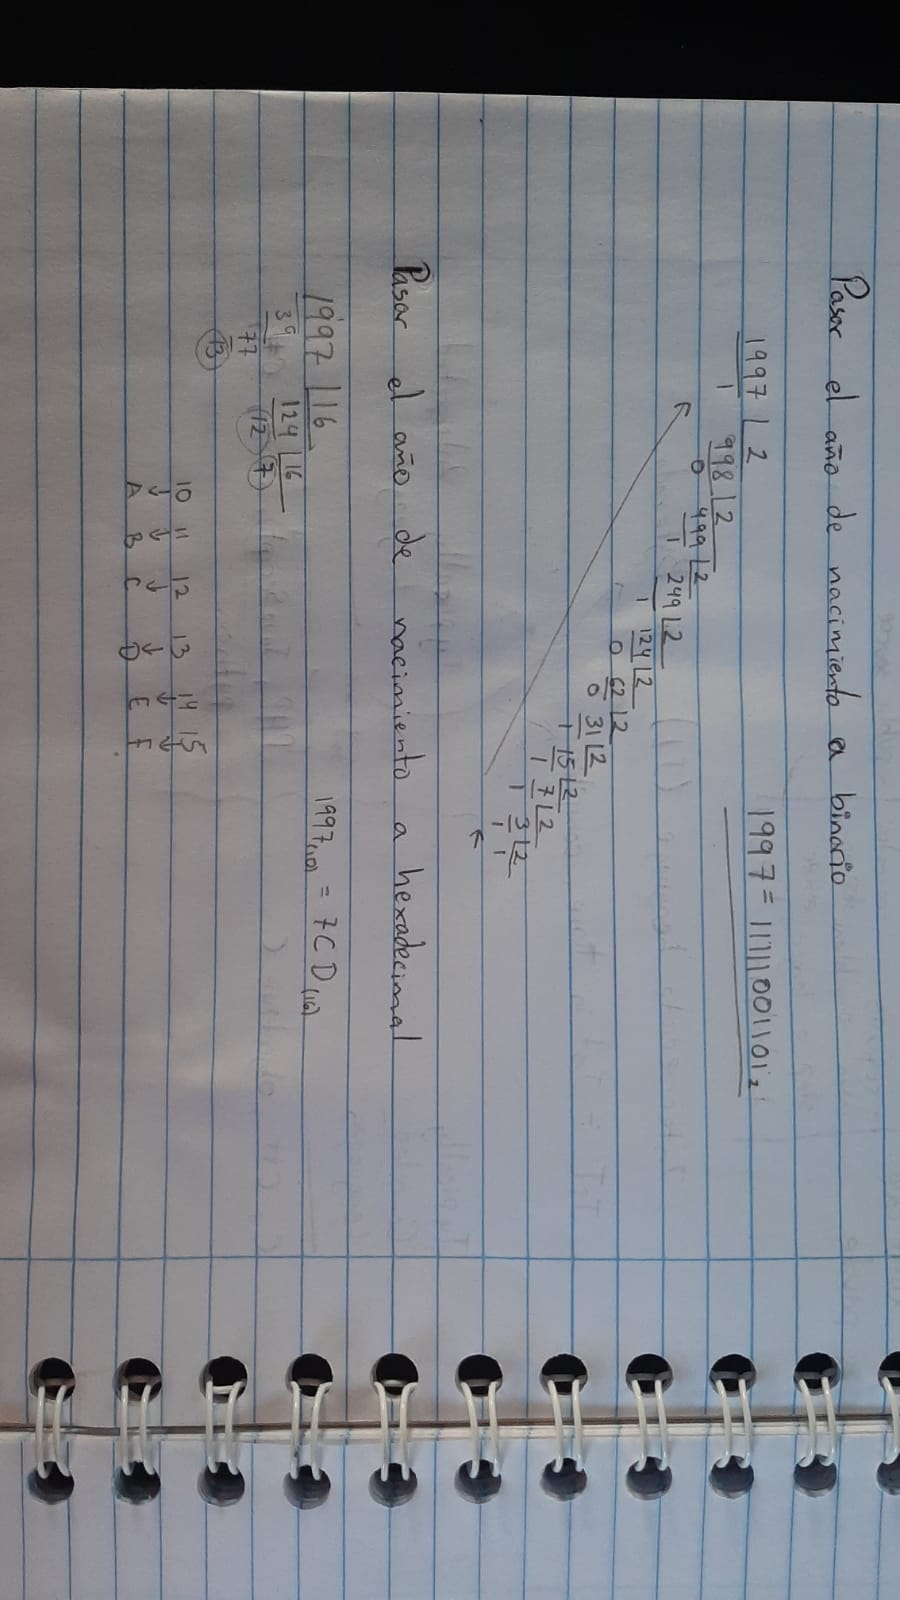 Pasar el año de nacimiento a binario
1997 2
1 998 2
0 499 2
1 249 2
1 124 2
0 62 2
0 31 2
1 15 2
1 7 2
1 3 2
1 1
1997 = 11111001101₂
Pasar el año de nacimiento a hexadecimal
1997 16
39 124 16
12 7
77
13
1997(10) = 7CD(16)
10 11 12 13 14 15
↓ ↓ ↓ ↓ ↓ ↓
A B C D E F